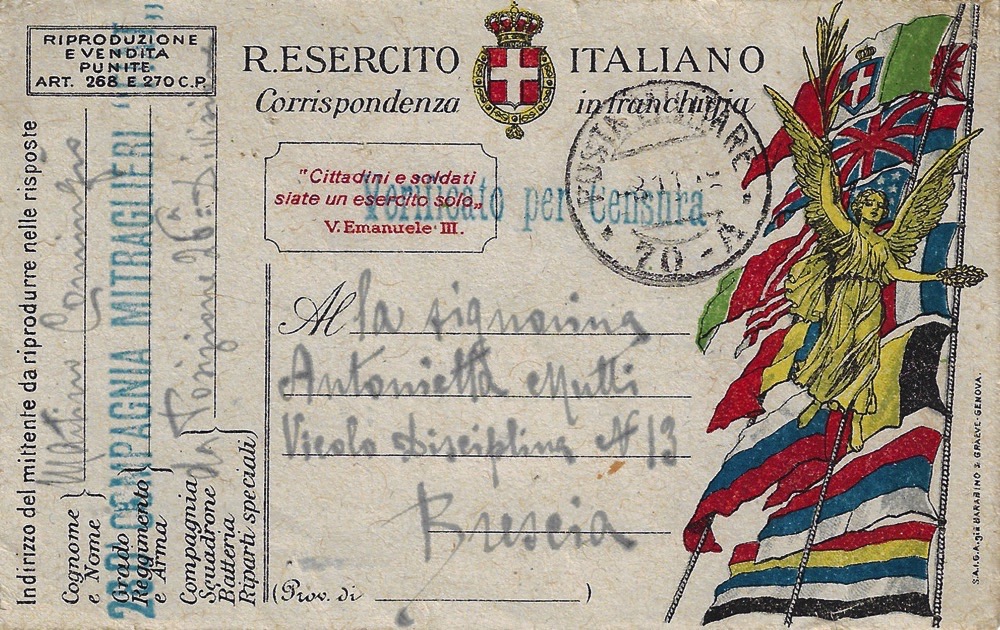 RIPRODUZIONE
E VENDITA
PUNITE
ART. 268 E 270 C.P.
R. ESERCITO ITALIANO
Corrispondenza in franchigia
"Cittadini e soldati
siate un esercito solo„
V. Emanuele III.
Verificato per Censura
POSTA MILITARE
70 - A
Al la signorina
Antonietta Mutti
Vicolo Disciplina N 13
Brescia
(Prov. di )
Indirizzo del mittente da riprodurre nelle risposte
Cognome
e Nome
Grado
Reggimento
e Arma
COMPAGNIA MITRAGLIERI
Compagnia
Squadrone
Batteria
Riparti speciali
26ª
S.A.I.G.A. già BARABINO & GRAEVE - GENOVA.